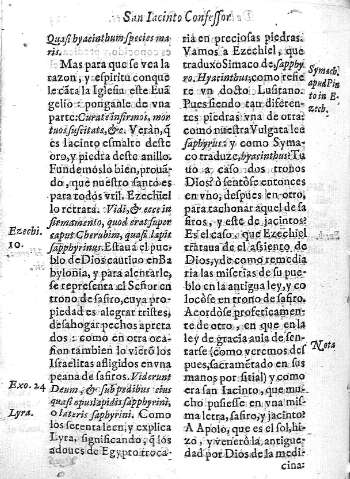 San Iacinto Confessor
Quasi hyacinthum, species ma-
ris.
Mas para que se vea la
razon, y espiritu conque
le cãta la Iglesia este Euã
gelio: ponganle de vna
parte: Curate infirmos, mor
tuos suscitate, &c. Veràn, q̃
es Iacinto esmalte deste
oro, y piedra deste anillo.
Fundemoslo bien, prouã-
do, que nuestro santo es
para todos vtil. Ezechiel
lo retrata. Vidi, & ecce in
firmamento, quod erat super
caput Cherubim, quasi lapis
sapphyrinus. Estaua el pue-
blo de Dios cautiuo en Ba
bylonia, y para alentarle,
se representa el Señor en
trono de safiro, cuya pro
piedad es alegrar tristes,
desahogar pechos apreta
dos: como en otra oca-
sion tambien lo vierõ los
Israelitas afligidos en vna
peana de safiros. Viderunt
Deum, & sub pedibus eius
quasi opus lapidis sapphyrini,
o lateris saphyrini. Como
los setenta leen, y explica
Lyra, significando, q̃ los
adoues de Egypto troca-
Ezechi.
10.
Exo. 24
Lyra.
ria en preciosas piedras.
Vamos a Ezechiel, que
traduxo Simaco de, sapphy
ro. Hyacinthus, como refie
re vn docto Lusitano.
Pues siendo tan diferen-
tes piedras vna de otra:
como nuestra Vulgata lee
saphyrus: y como Syma-
co traduze, hyacinthus: Tu
uo a caso dos tronos
Dios? ò sentòse entonces
en vno, despues en otro,
para tachonar aquel de sa
firos, y este de jacintos?
Es el caso: que Ezechiel
trataua de el asiento de
Dios, y de como remedia
ria las miserias de su pue-
blo en la antigua ley, y co
locòse en trono de safiro.
Acordòse profeticamen-
te de otro, en que en la
ley de gracia auia de sen-
tarse (como veremos des
pues, sacramẽtado en sus
manos por sitial) y como
era san Iacinto, que mu-
cho pusiesse en vna mis-
ma letra, safiro, y jacinto?
A Apolo, que es el sol, hi-
zo, y venerò la antigue-
dad por Dios de la medi-
cina:
Symach.
apud Pin
to in E-
zech.
Nota